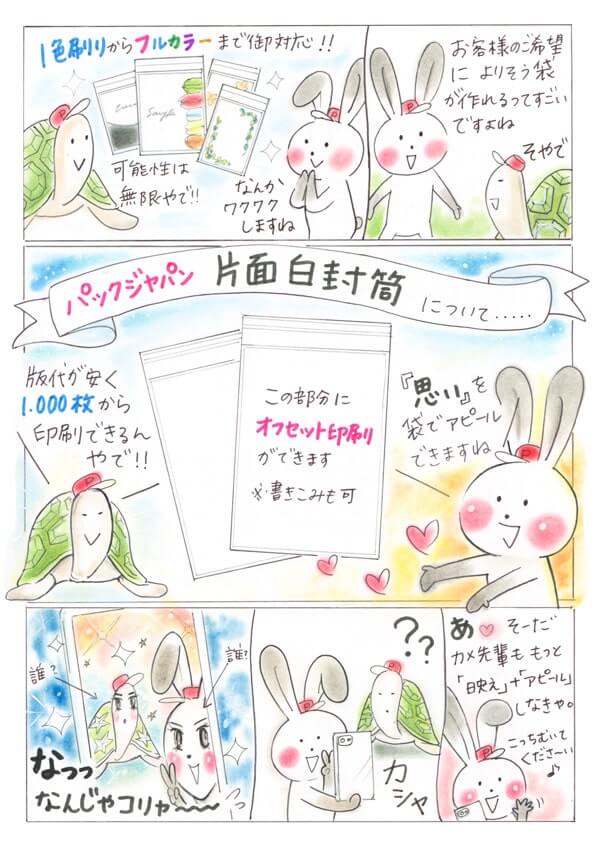 お客様のご希望
に よりそう袋
が作れるってすごい
ですよね
そやで
1色刷りからフルカラーまで御対応!!
Sample
可能性は
無限やで!!
なんか
ワクワク
しますね
パックジャパン 片面白封筒 について.....
『思い』を
袋でアピール
できますね
この部分に
オフセット印刷
ができます
※書きこみも可
版代が安く
1.000枚から
印刷できるん
やで!!
あ♡ そーだ
カメ先輩も もっと
「映え」+「アピール」
しなきゃ。
こっちむいて
くださーい♪
P
??
カシャ
誰?
誰?
なっっ
なんじゃコリャ〜〜〜